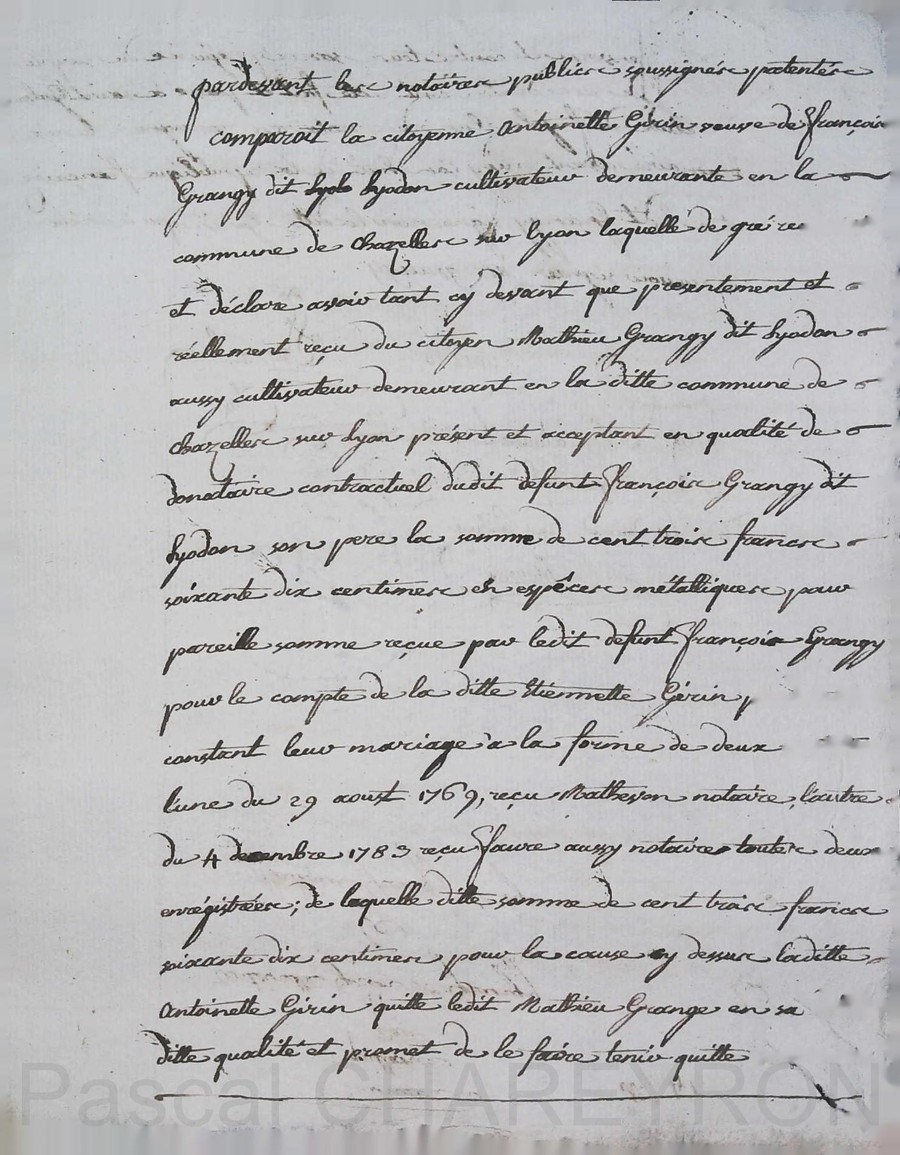 pardevant les notaires publics soussignés patentés
comparoit la citoyenne Antoinette Girin veuve de françois
Grangy dit hyodon cultivateur demeurante en la
commune de chazelles sur lyon laquelle de gré
et déclare avoir tant cy devant que presentement et
réellement reçu du citoyen Mathieu Grangy dit hyodon
aussy cultivateur demeurant en la ditte commune de
chazelles sur lyon présent et acceptant en qualité de
donataire contractuel dudit defunt françois Grangy dit
hyodon son pere la somme de cent trois francs
soixante dix centimes en espêces métalliques pour
pareille somme reçue par ledit defunt françois Grangy
pour le compte de la ditte Etiennette Girin,
constant leur mariage à la forme de deux
l'une du 29 aoust 1769, reçu Matheson notaire, l'autre
du 4 decembre 1783 reçu faure aussy notaire toutes deux
enrégistrées; de laquelle ditte somme de cent trois francs
soixante dix centimes pour la cause cy dessus laditte
Antoinette Girin quitte ledit Mathieu Grange en sa
ditte qualité et promet de le faire tenir quitte
Pascal CHAREYRON